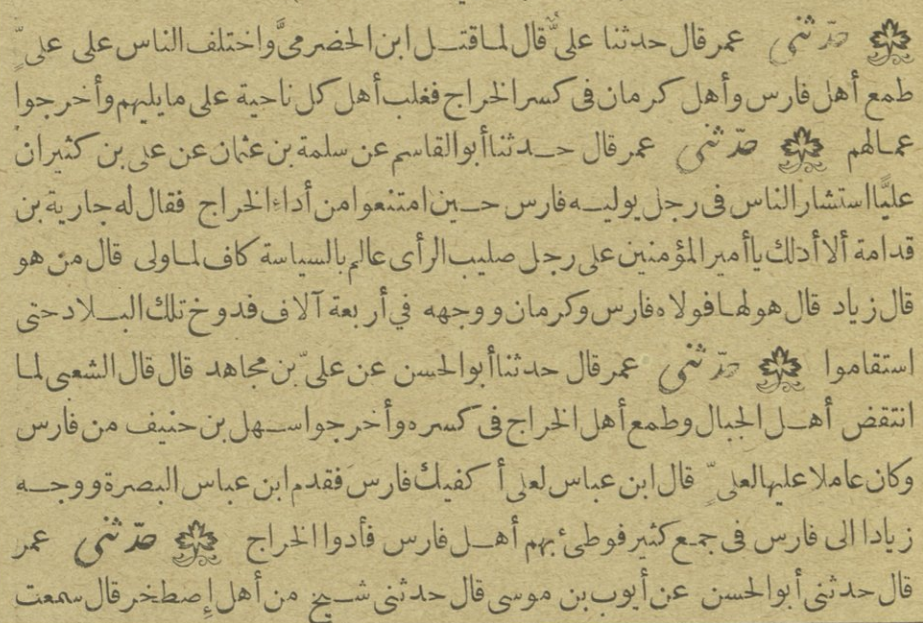 حدّثني عمر قال حدثنا علىّ قال لما قتل ابن الحضرمىّ واختلف الناس على علىّ
طمع أهل فارس وأهل كرمان فى كسر الخراج فغلب أهل كل ناحية على ما يليهم وأخرجوا
عمالهم حدّثني عمر قال حدثنا أبو القاسم عن سلمة بن عثمان عن على بن كثير ان
عليًّا استشار الناس فى رجل يوليه فارس حين امتنعوا من أداء الخراج فقال له جارية بن
قدامة ألا أدلك يا أمير المؤمنين على رجل صليب الرأى عالم بالسياسة كاف لما ولى قال من هو
قال زياد قال هو لها فولاه فارس وكرمان ووجهه في أربعة آلاف فدوخ تلك البلاد حتى
استقاموا حدّثني عمر قال حدثنا أبو الحسن عن علىّ بن مجاهد قال قال الشعبى لما
انتقض أهل الجبال وطمع أهل الخراج فى كسره وأخرجوا سهل بن حنيف من فارس
وكان عاملا عليها لعلىّ قال ابن عباس لعلى أكفيك فارس فقدم ابن عباس البصرة ووجه
زيادا الى فارس فى جمع كثير فوطئ بهم أهل فارس فأدوا الخراج حدّثني عمر
قال حدثنى أبو الحسن عن أيوب بن موسى قال حدثنى شيخ من أهل إصطخر قال سمعت